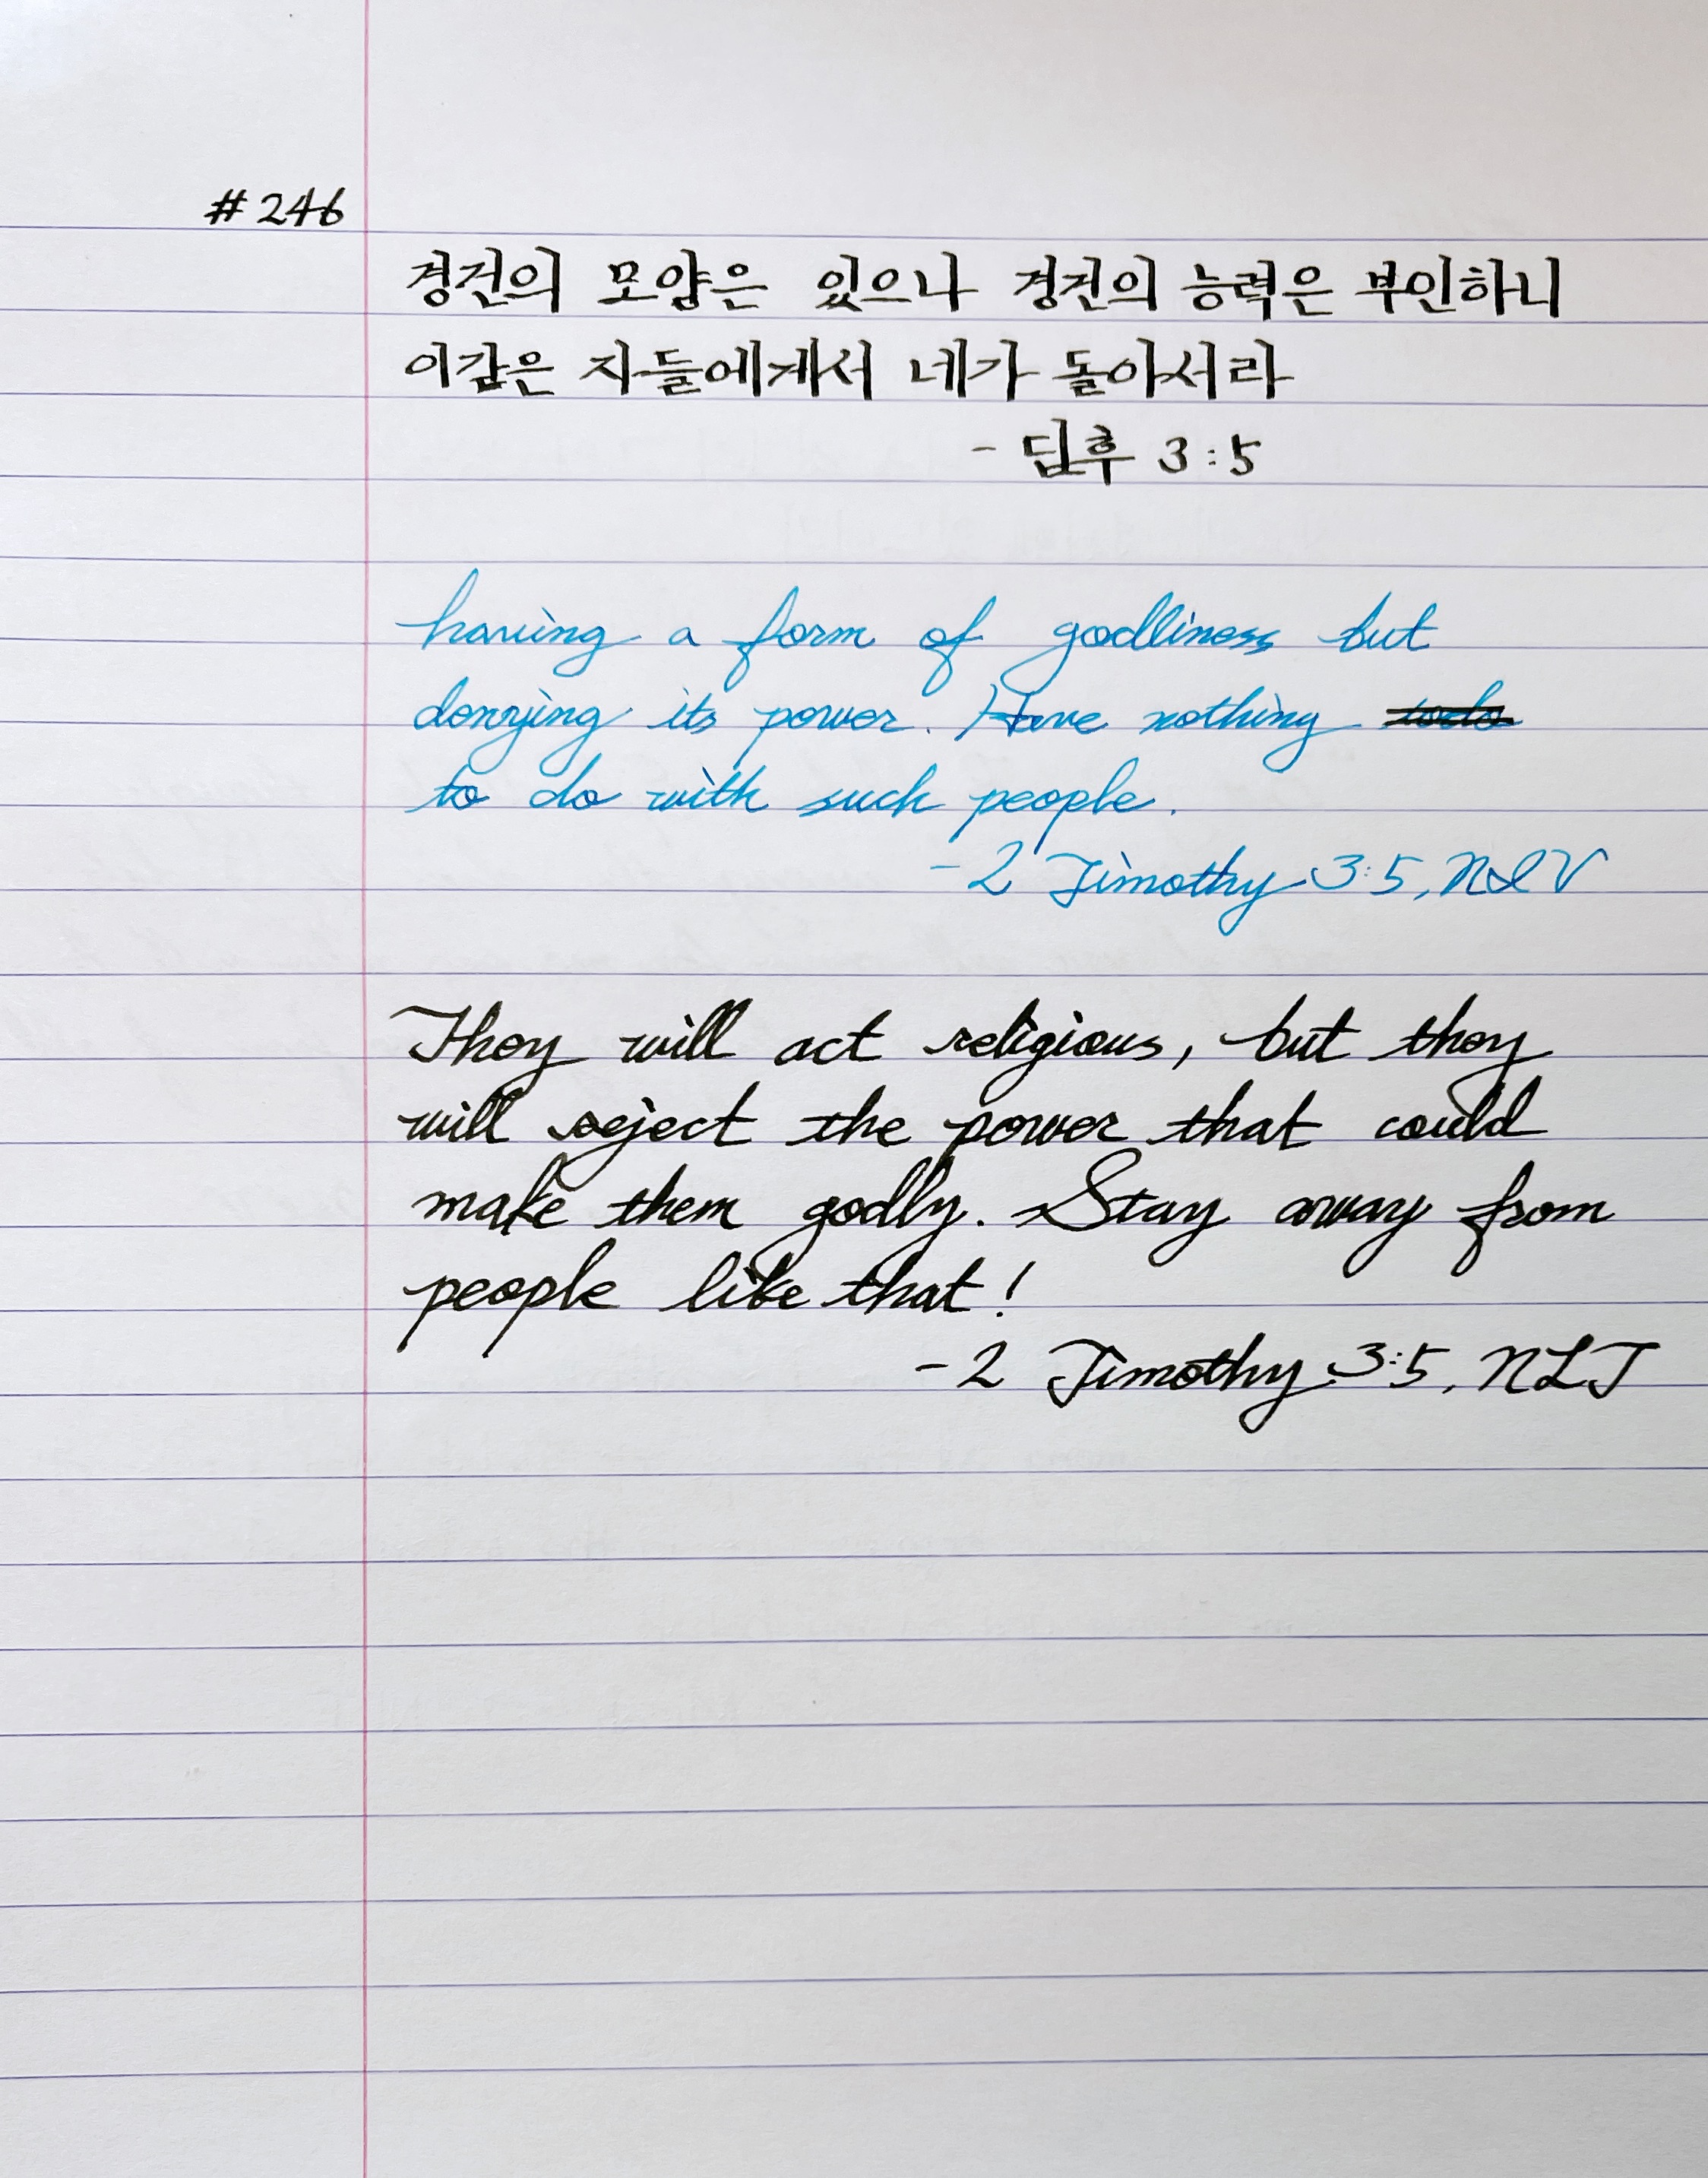 #246
경건의 모양은 있으나 경건의 능력은 부인하니
이같은 자들에게서 네가 돌아서라
- 딤후 3:5
having a form of godliness but
denying its power. Have nothing
to do with such people.
- 2 Timothy 3:5, NIV
They will act religious, but they
will reject the power that could
make them godly. Stay away from
people like that!
- 2 Timothy 3:5, NLT